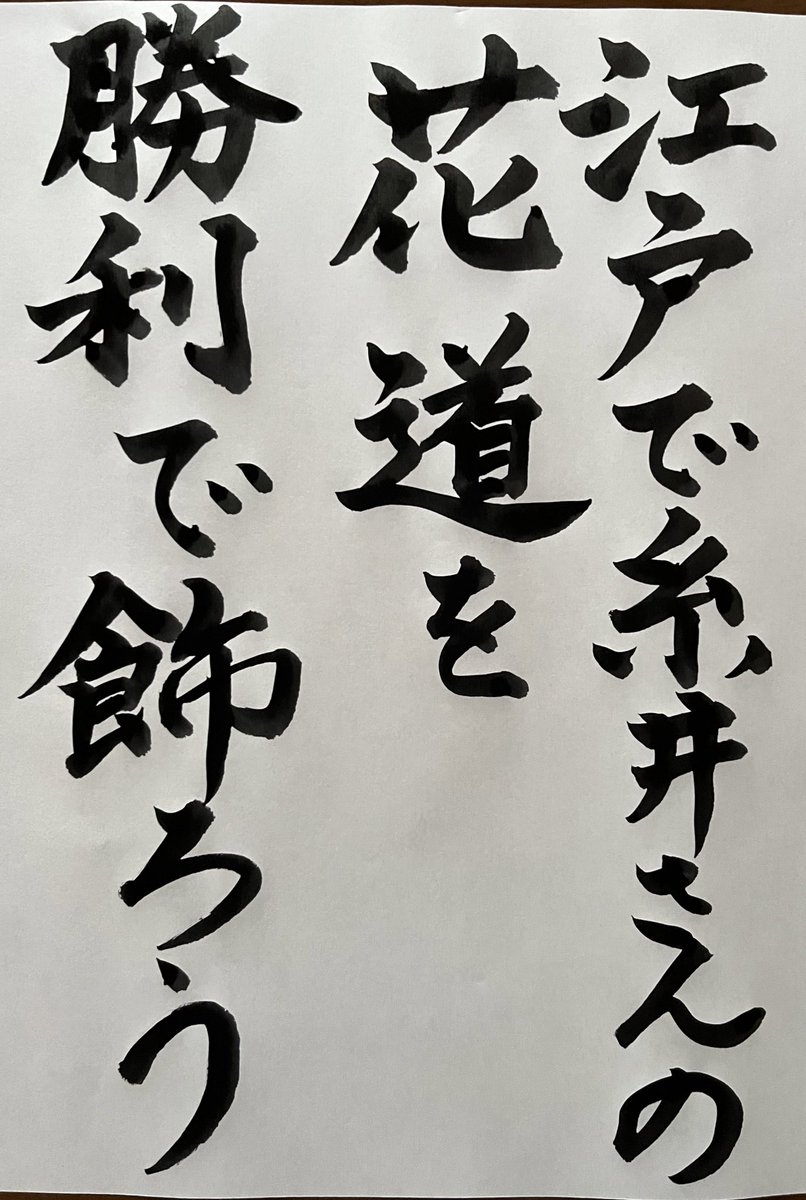 江戸で糸井さんの
花道を
勝利で飾ろう